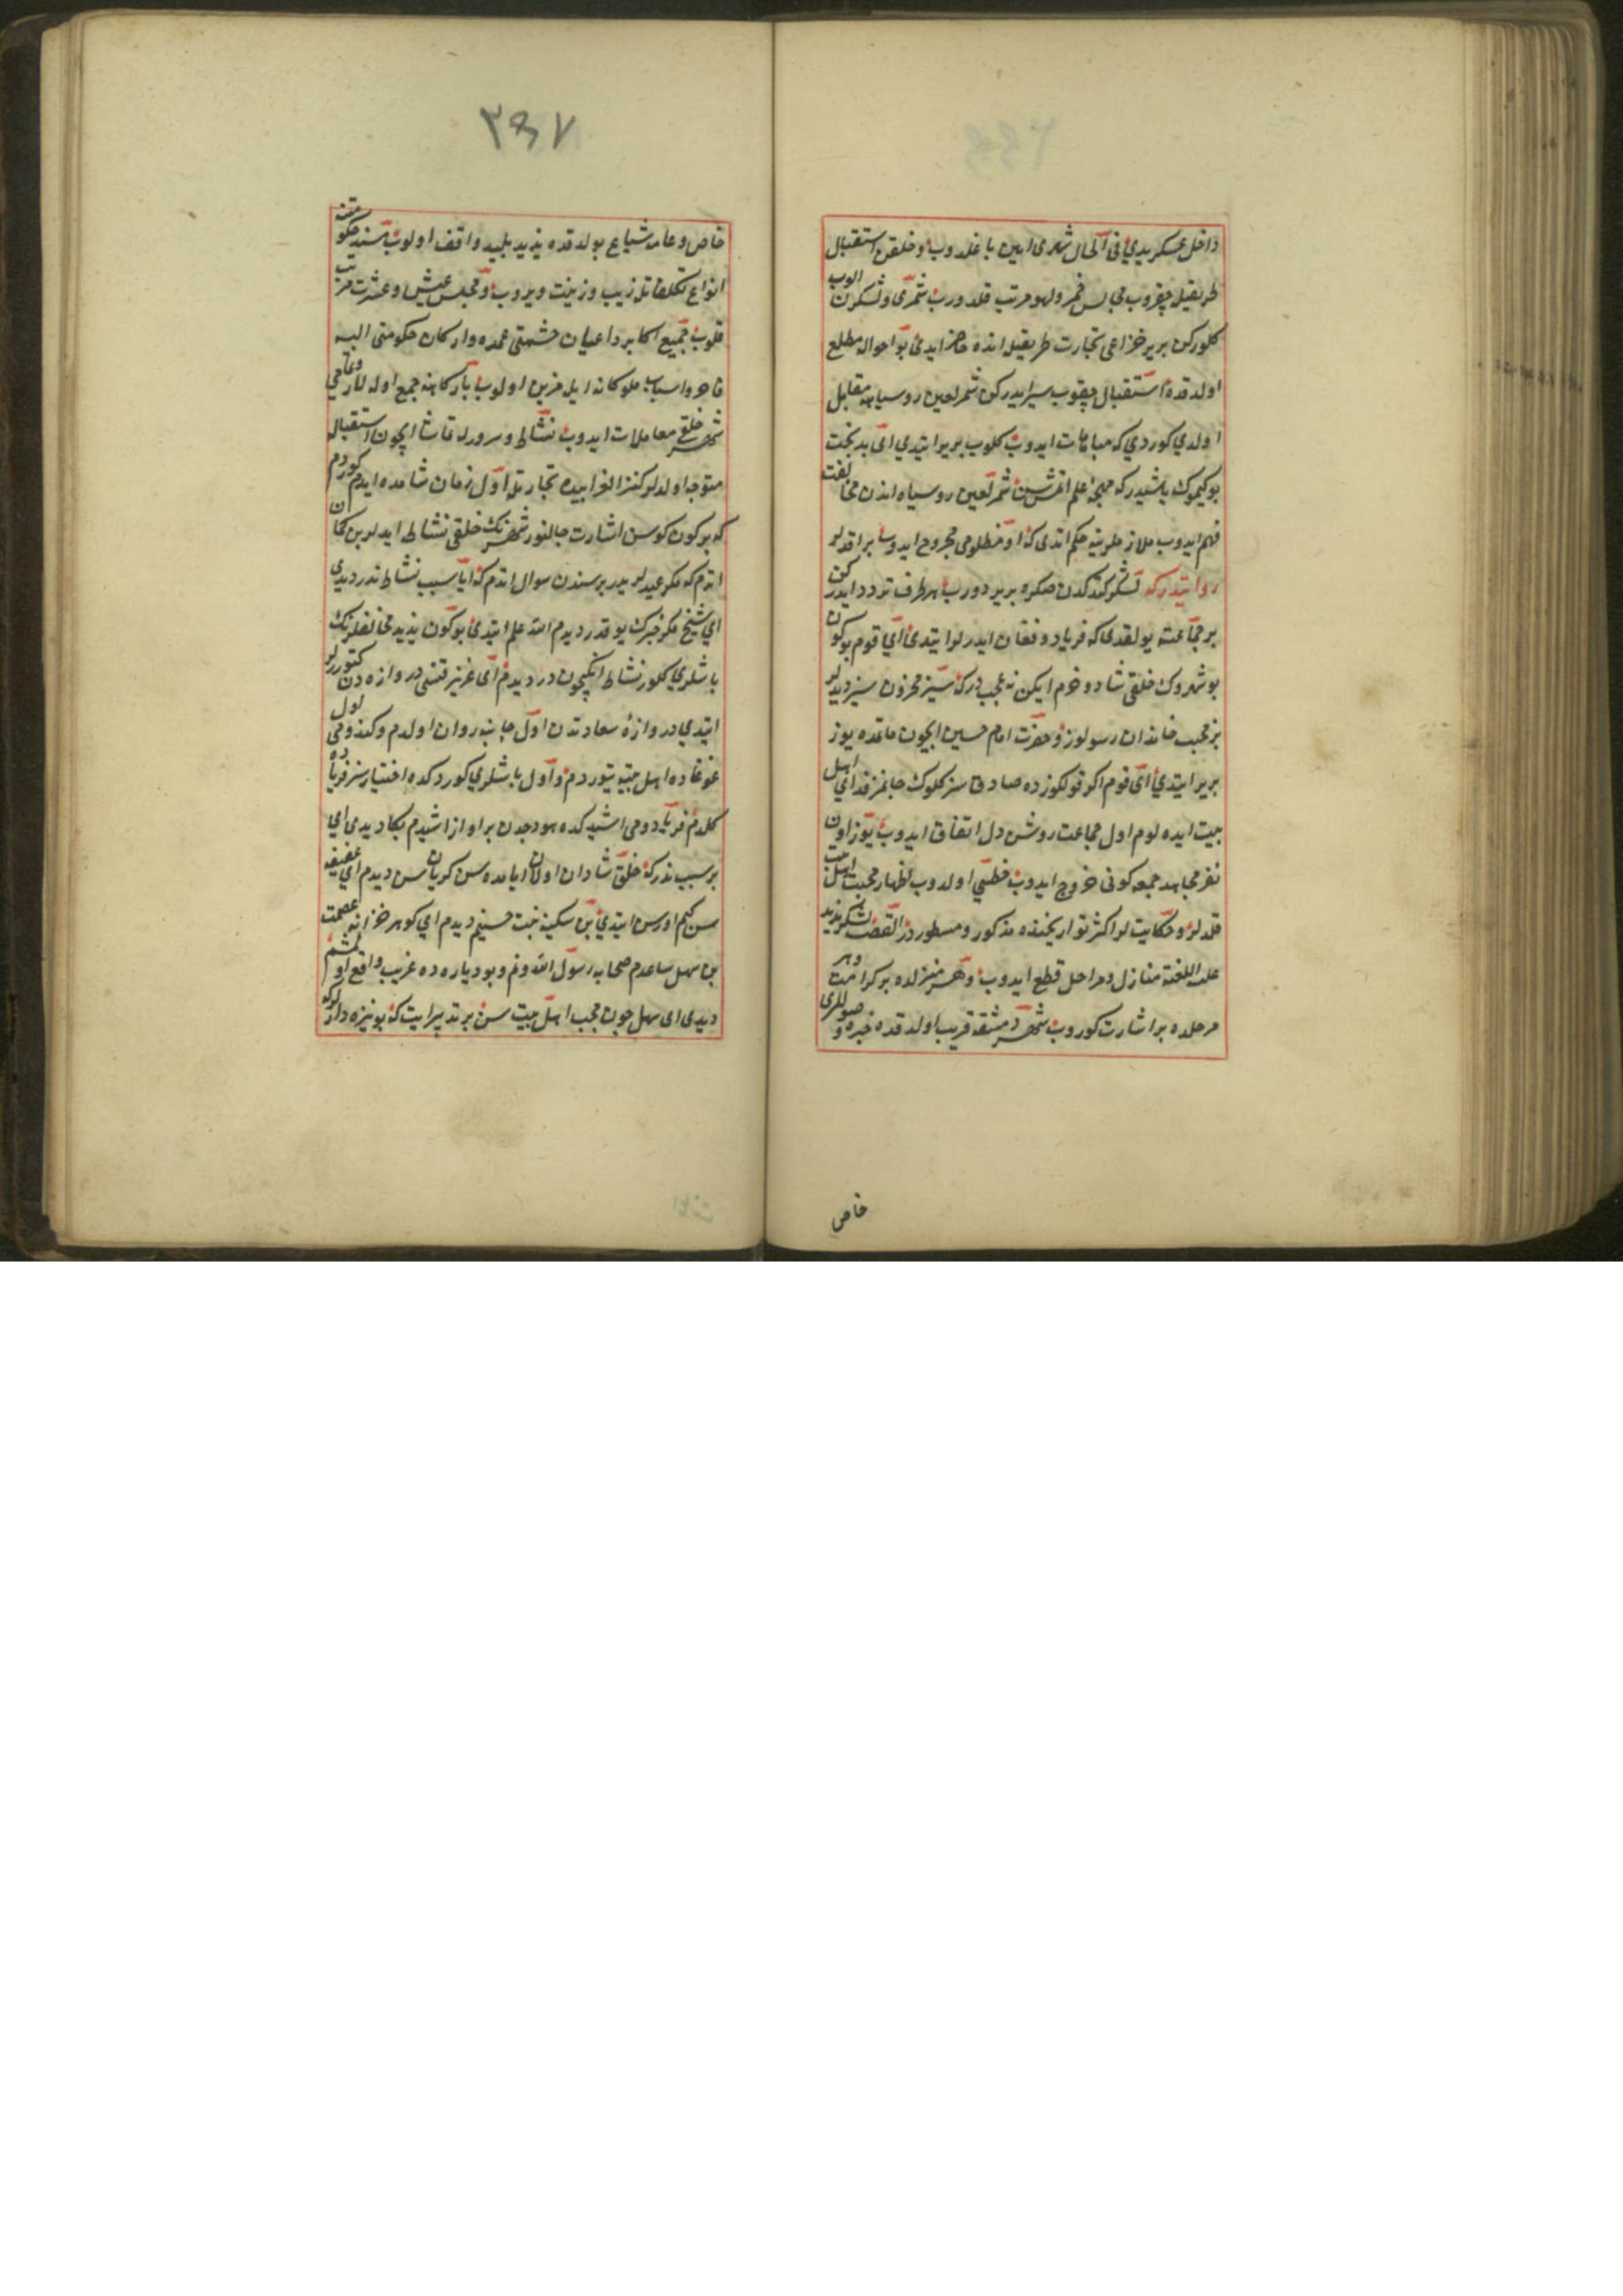 داخل عسكر يدي في الحال شهری ايين باغلدوب و خلقن استقبال
طريقيله چقروب مجالس خمر و لهو مرتب قلدورب شمری و لشكرن الوب
كلوركن برير خزاعی تجارت طريقيله انده حاضر ايدی بو احواله مطلع
اولدقده استقبال چقوب سير ايدركن شمر لعين روسياهه مقابل
اولدي كوردي كه مباهات ايدوب كلوب برير ايتدي ای بدبخت
بو كيموك باشيدر كه مهجه علم اتمشسن شمر لعين روسياه اندن مخالفت
فهم ايدوب ملازملرينه حكم اتدی كه او مظلومی مجروح ايدوب براقديلر
روايتدر كه لشكر كتدكدن صكره برير دورب هر طرف تردد ايدركن
بر جماعت بولقدی كه فرياد و فغان ايدرلر ايتدی ای قوم بوكون
بو شهروك خلقی شاد و خرم ايكن نه عجبدر كه سيز محزون سيز ديديلر
بز محب خاندان رسولوز و حضرت امام حسين ايچون ماتمده يوز
برير ايتدی ای قوم اكر قولكوزده صادقسز كلوك جانمز فدای اهل
بيت ايده لوم اول جماعت روشن دل اتفاق ايدوب يوز اون
نفر مجاهد جمعه كونی خروج ايدوب خطيبی اولدوب اظهار محبت اهل بيت
قلديلر و حكايتلر اكثر تواريخنده مذكور و مسطوردر القصه لشكر يزيد
عليه اللعنه منازل و مراحل قطع ايدوب و هر منزلده بر كرامت و هر
مرحله ده بر اشارت كوروب شهر دمشقه قريب اولدقده خبر وصوللری
خاص
٣٩٧
خاص و عامه شياع بولدقده يزيد پليد واقف اولوب مسند حكومتنه
انواع تكلفاتله زيب و زينت ويروب و مجلس عيش و عشرت مرتب
قلوب جميع اكابر و اعيان حشمتی عمده و اركان حكومتی البسه
فاخر و اسباب ملوكانه ايله مزين اولوب باركاهنه جمع اولديلر و تمامی
شهر خلقی معاملات ايدوب نشاط و سرورله تماشا ايچون استقباله
متوجه اولديلر كنز الغرايبده تجارتله اول زمان شامده ايدم كوردم
كه بوكون كوس اشارت چالنور شهرنك خلقی نشاط ايدلر بن كمان
اتدم كه مكر عيدلريدر برسندن سوال اتدم كه ايا سبب نشاط ندر ديدی
ای شيخ مكر خبرك يوقدر ديدم الله علم ايتدی بوكون يزيد مخالفلرينك
باشلری كلور نشاط انكيچوندر ديدم ای عزيز قنغی دروازه دن كتورلر
ايتدي دروازۀ سعادتدن اول جانبه روان اولدم و كندومی اول
غوغاده اهل بيته يتوردم و اول باشلري كوردكده اختيارسز فرياده
كلدم فريادومی اشيدكده هودجدن بر اواز اشيدم بكا ديدی ای
بر سبب ندر كه خلق شادان اولان ايامده سن كريان سن ديدم ای عفيفه
سن كيم اورسن ايتدی بن سكينه بنت حسينم ديدم ای كوهر خزانه عصمت
بن سهل ساعدم صحابه رسول الله ونم و بو دياره ده غريب واقع اولمشم
ديدی ای سهل چون محب اهل بيت سن بر تدبير ايت كه بو نيزه دارلر كه